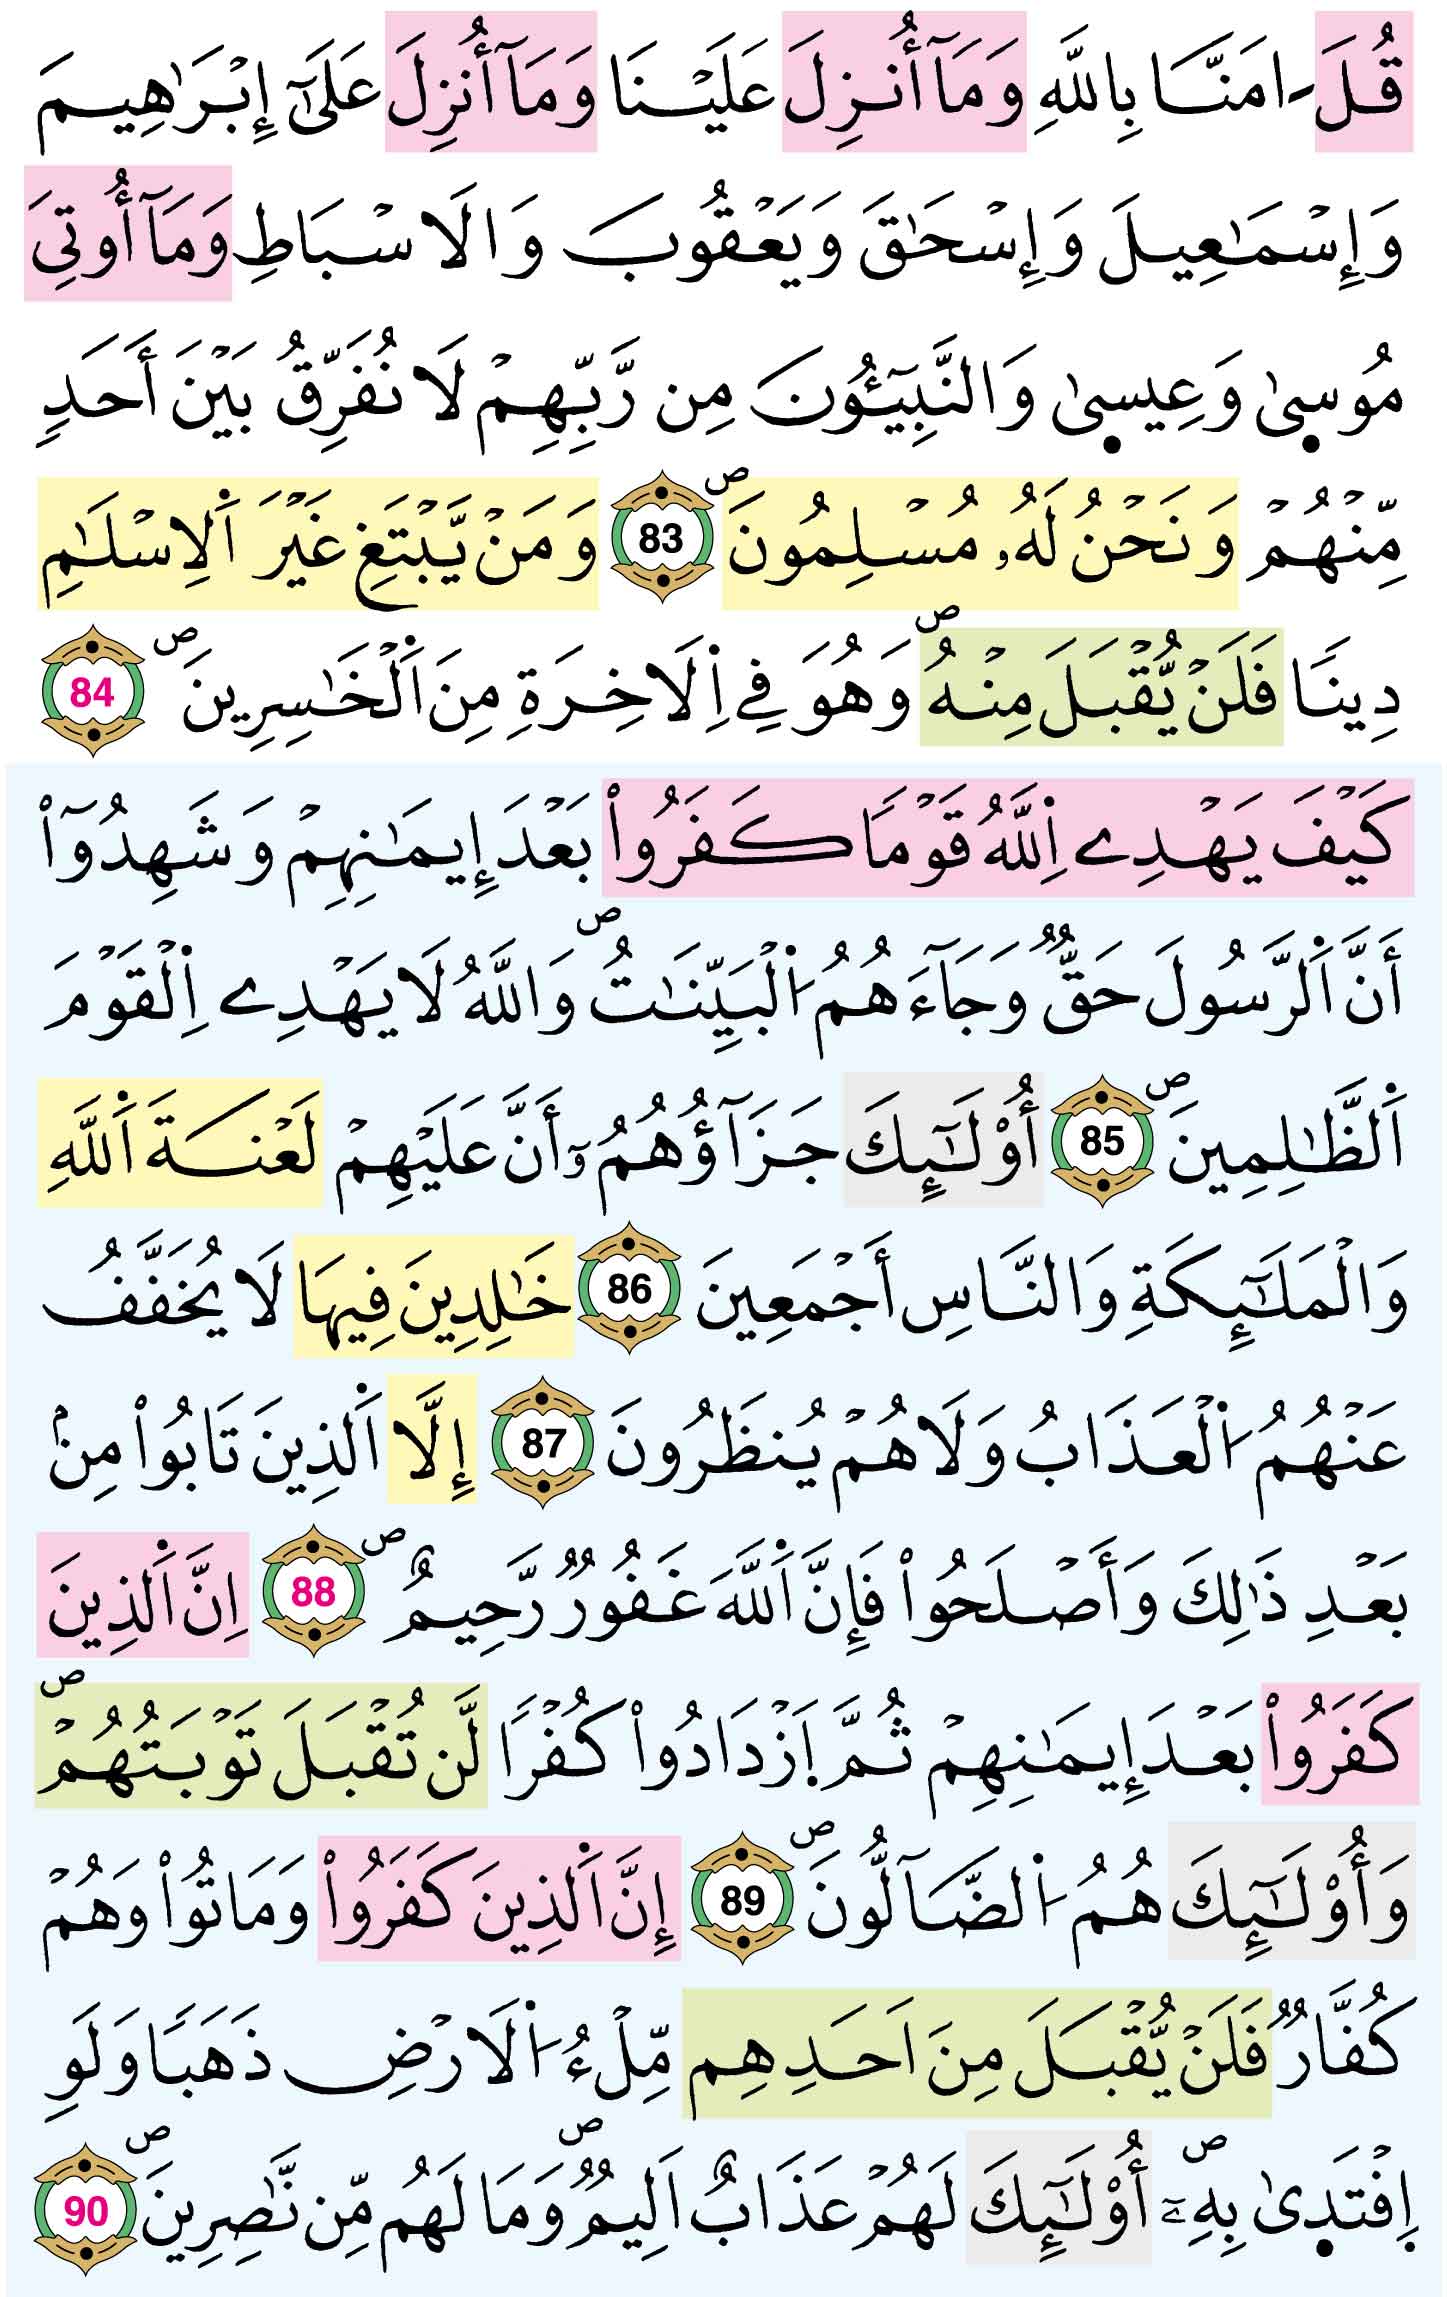 قُلَ ـٰامَنَّا بِاللَّهِ وَمَآ أُنزِلَ عَلَيْنَا وَمَآ أُنزِلَ عَلَىٰٓ إِبْرَٰهِيمَ
وَإِسْمَٰعِيلَ وَإِسْحَٰقَ وَيَعْقُوبَ وَالَاسْبَاطِ وَمَآ أُوتِيَ
مُوسۭيٰ وَعِيسۭيٰ وَالنَّبِيٓـُٔونَ مِن رَّبِّهِمْ لَا نُفَرِّقُ بَيْنَ أَحَدٍ
مِّنْهُمْ وَنَحْنُ لَهُۥ مُسْلِمُونَۖ 83 وَمَنْ يَّبْتَغِ غَيْرَ اَ۬لِاسْلَٰمِ
دِينًا فَلَنْ يُّقْبَلَ مِنْهُۖ وَهُوَ فِے اِ۬لَاخِرَةِ مِنَ اَ۬لْخَٰسِرِينَۖ 84
كَيْفَ يَهْدِے اِ۬للَّهُ قَوْمًا كَفَرُواْ بَعْدَ إِيمَٰنِهِمْ وَشَهِدُوٓاْ
أَنَّ اَ۬لرَّسُولَ حَقٌّ وَجَآءَهُمُ اُ۬لْبَيِّنَٰتُۖ وَاللَّهُ لَا يَهْدِے اِ۬لْقَوْمَ
اَ۬لظَّٰلِمِينَۖ 85 أُوْلَٰٓئِكَ جَزَآؤُهُمُۥٓ أَنَّ عَلَيْهِمْ لَعْنَةَ اَ۬للَّهِ
وَالْمَلَٰٓئِكَةِ وَالنَّاسِ أَجْمَعِينَ 86 خَٰلِدِينَ فِيهَا لَا يُخَفَّفُ
عَنْهُمُ اُ۬لْعَذَابُ وَلَا هُمْ يُنظَرُونَ 87 إِلَّا اَ۬لذِينَ تَابُواْ مِنۢ
بَعْدِ ذَٰلِكَ وَأَصْلَحُواْ فَإِنَّ اَ۬للَّهَ غَفُورٌ رَّحِيمٌۖ 88 اِنَّ اَ۬لذِينَ
كَفَرُواْ بَعْدَ إِيمَٰنِهِمْ ثُمَّ اَ۪زْدَادُواْ كُفْرًا لَّن تُقْبَلَ تَوْبَتُهُمْۖ
وَأُوْلَٰٓئِكَ هُمُ اُ۬لضَّآلُّونَۖ 89 إِنَّ اَ۬لذِينَ كَفَرُواْ وَمَاتُواْ وَهُمْ
كُفَّارٌ فَلَنْ يُّقْبَلَ مِنَ اَحَدِهِم مِّلْءُ اُ۬لَارْضِ ذَهَبًا وَلَوِ
اِ۪فْتَدۭىٰ بِهِۦٓۖ أُوْلَٰٓئِكَ لَهُمْ عَذَابٌ اَلِيمٌۖ وَمَا لَهُم مِّن نَّٰصِرِينَۖ 90